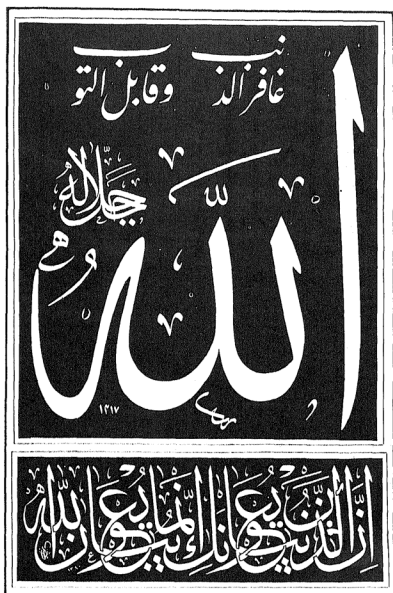 غافر الذنب وقابل التوب
الله
جل جلاله
١٣١٧
إن الذين يبايعونك إنما يبايعون الله